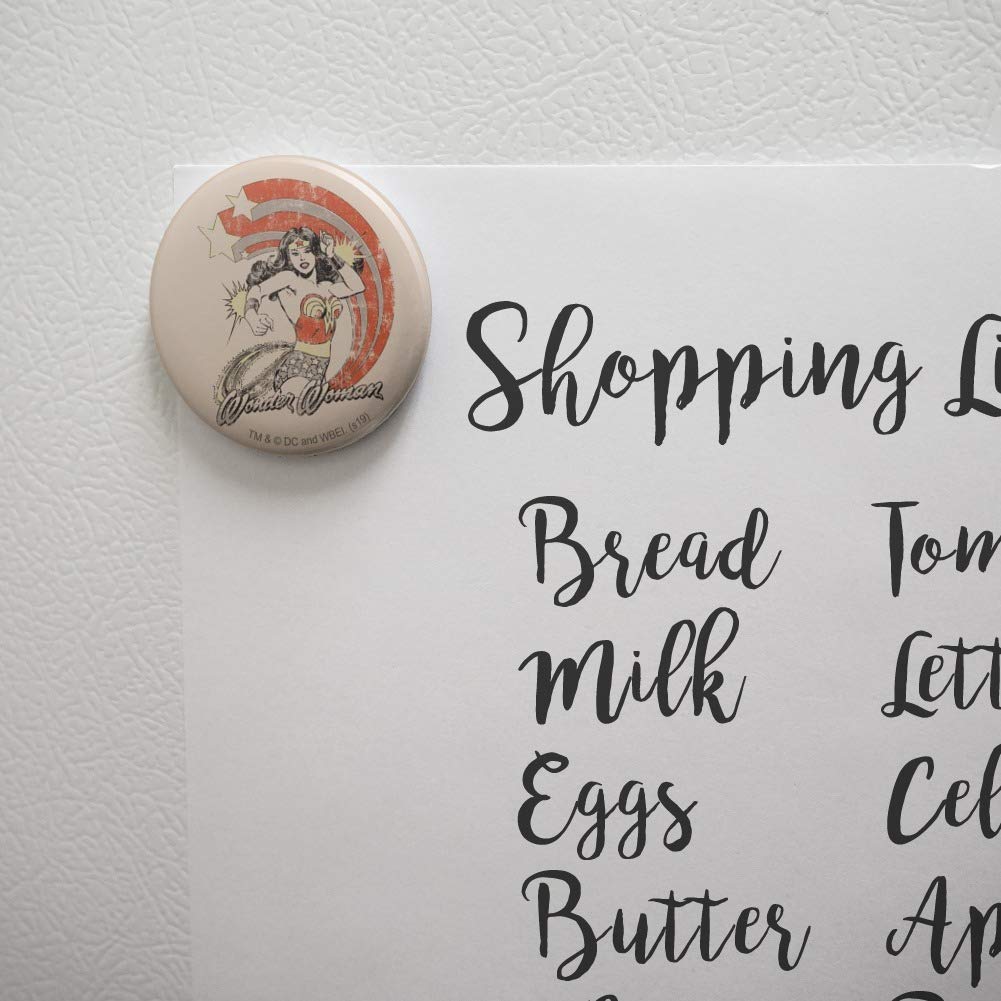 Wonder Woman
TM & © DC and WBEI. (s19)
Shopping Li
Bread
Tom
Milk
Lett
Eggs
Cel
Butter
Ap